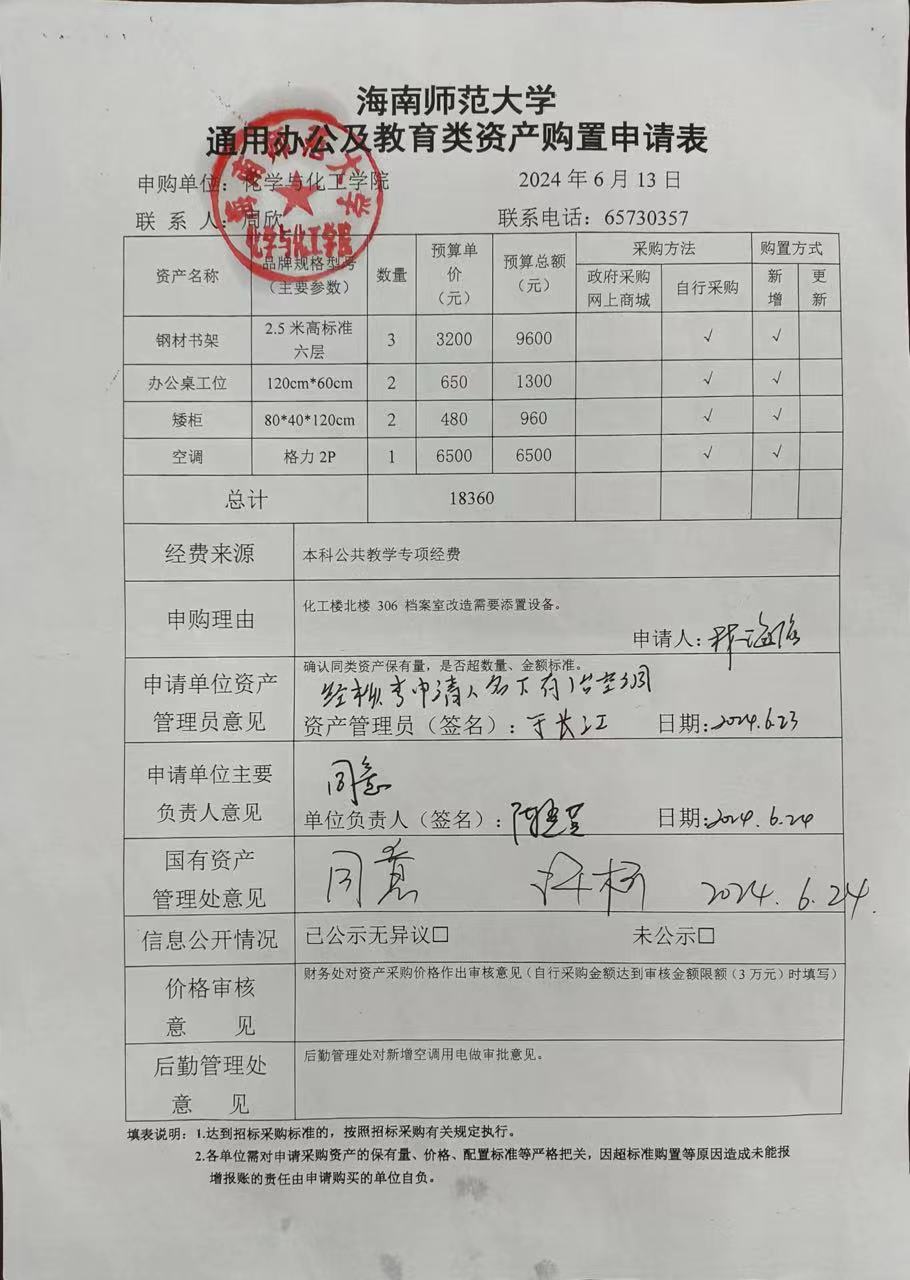 海南师范大学
通用办公及教育类资产购置申请表
申购单位：化学与化工学院 2024 年 6 月 13 日
联 系 人：周欣 联系电话：65730357
海南师范大学
化学与化工学院
资产名称 品牌规格型号（主要参数） 数量 预算单价（元） 预算总额（元） 采购方法 购置方式
政府采购网上商城 自行采购 新增 更新
钢材书架 2.5 米高标准六层 3 3200 9600 √ √
办公桌工位 120cm*60cm 2 650 1300 √ √
矮柜 80*40*120cm 2 480 960 √ √
空调 格力 2P 1 6500 6500 √ √
总计 18360
经费来源 本科公共教学专项经费
申购理由 化工楼北楼 306 档案室改造需要添置设备。
申请人：
申请单位资产管理员意见 确认同类资产保有量，是否超数量、金额标准。
经核查申请人名下有1台空调
资产管理员（签名）：于长江 日期：2024.6.23
申请单位主要负责人意见 同意
单位负责人（签名）： 日期：2024.6.24
国有资产管理处意见 同意 2024.6.24.
信息公开情况 已公示无异议□ 未公示□
价格审核意 见 财务处对资产采购价格作出审核意见（自行采购金额达到审核金额限额（3 万元）时填写）
后勤管理处意 见 后勤管理处对新增空调用电做审批意见。
填表说明：1.达到招标采购标准的，按照招标采购有关规定执行。
2.各单位需对申请采购资产的保有量、价格、配置标准等严格把关，因超标准购置等原因造成未能报
增报账的责任由申请购买的单位自负。